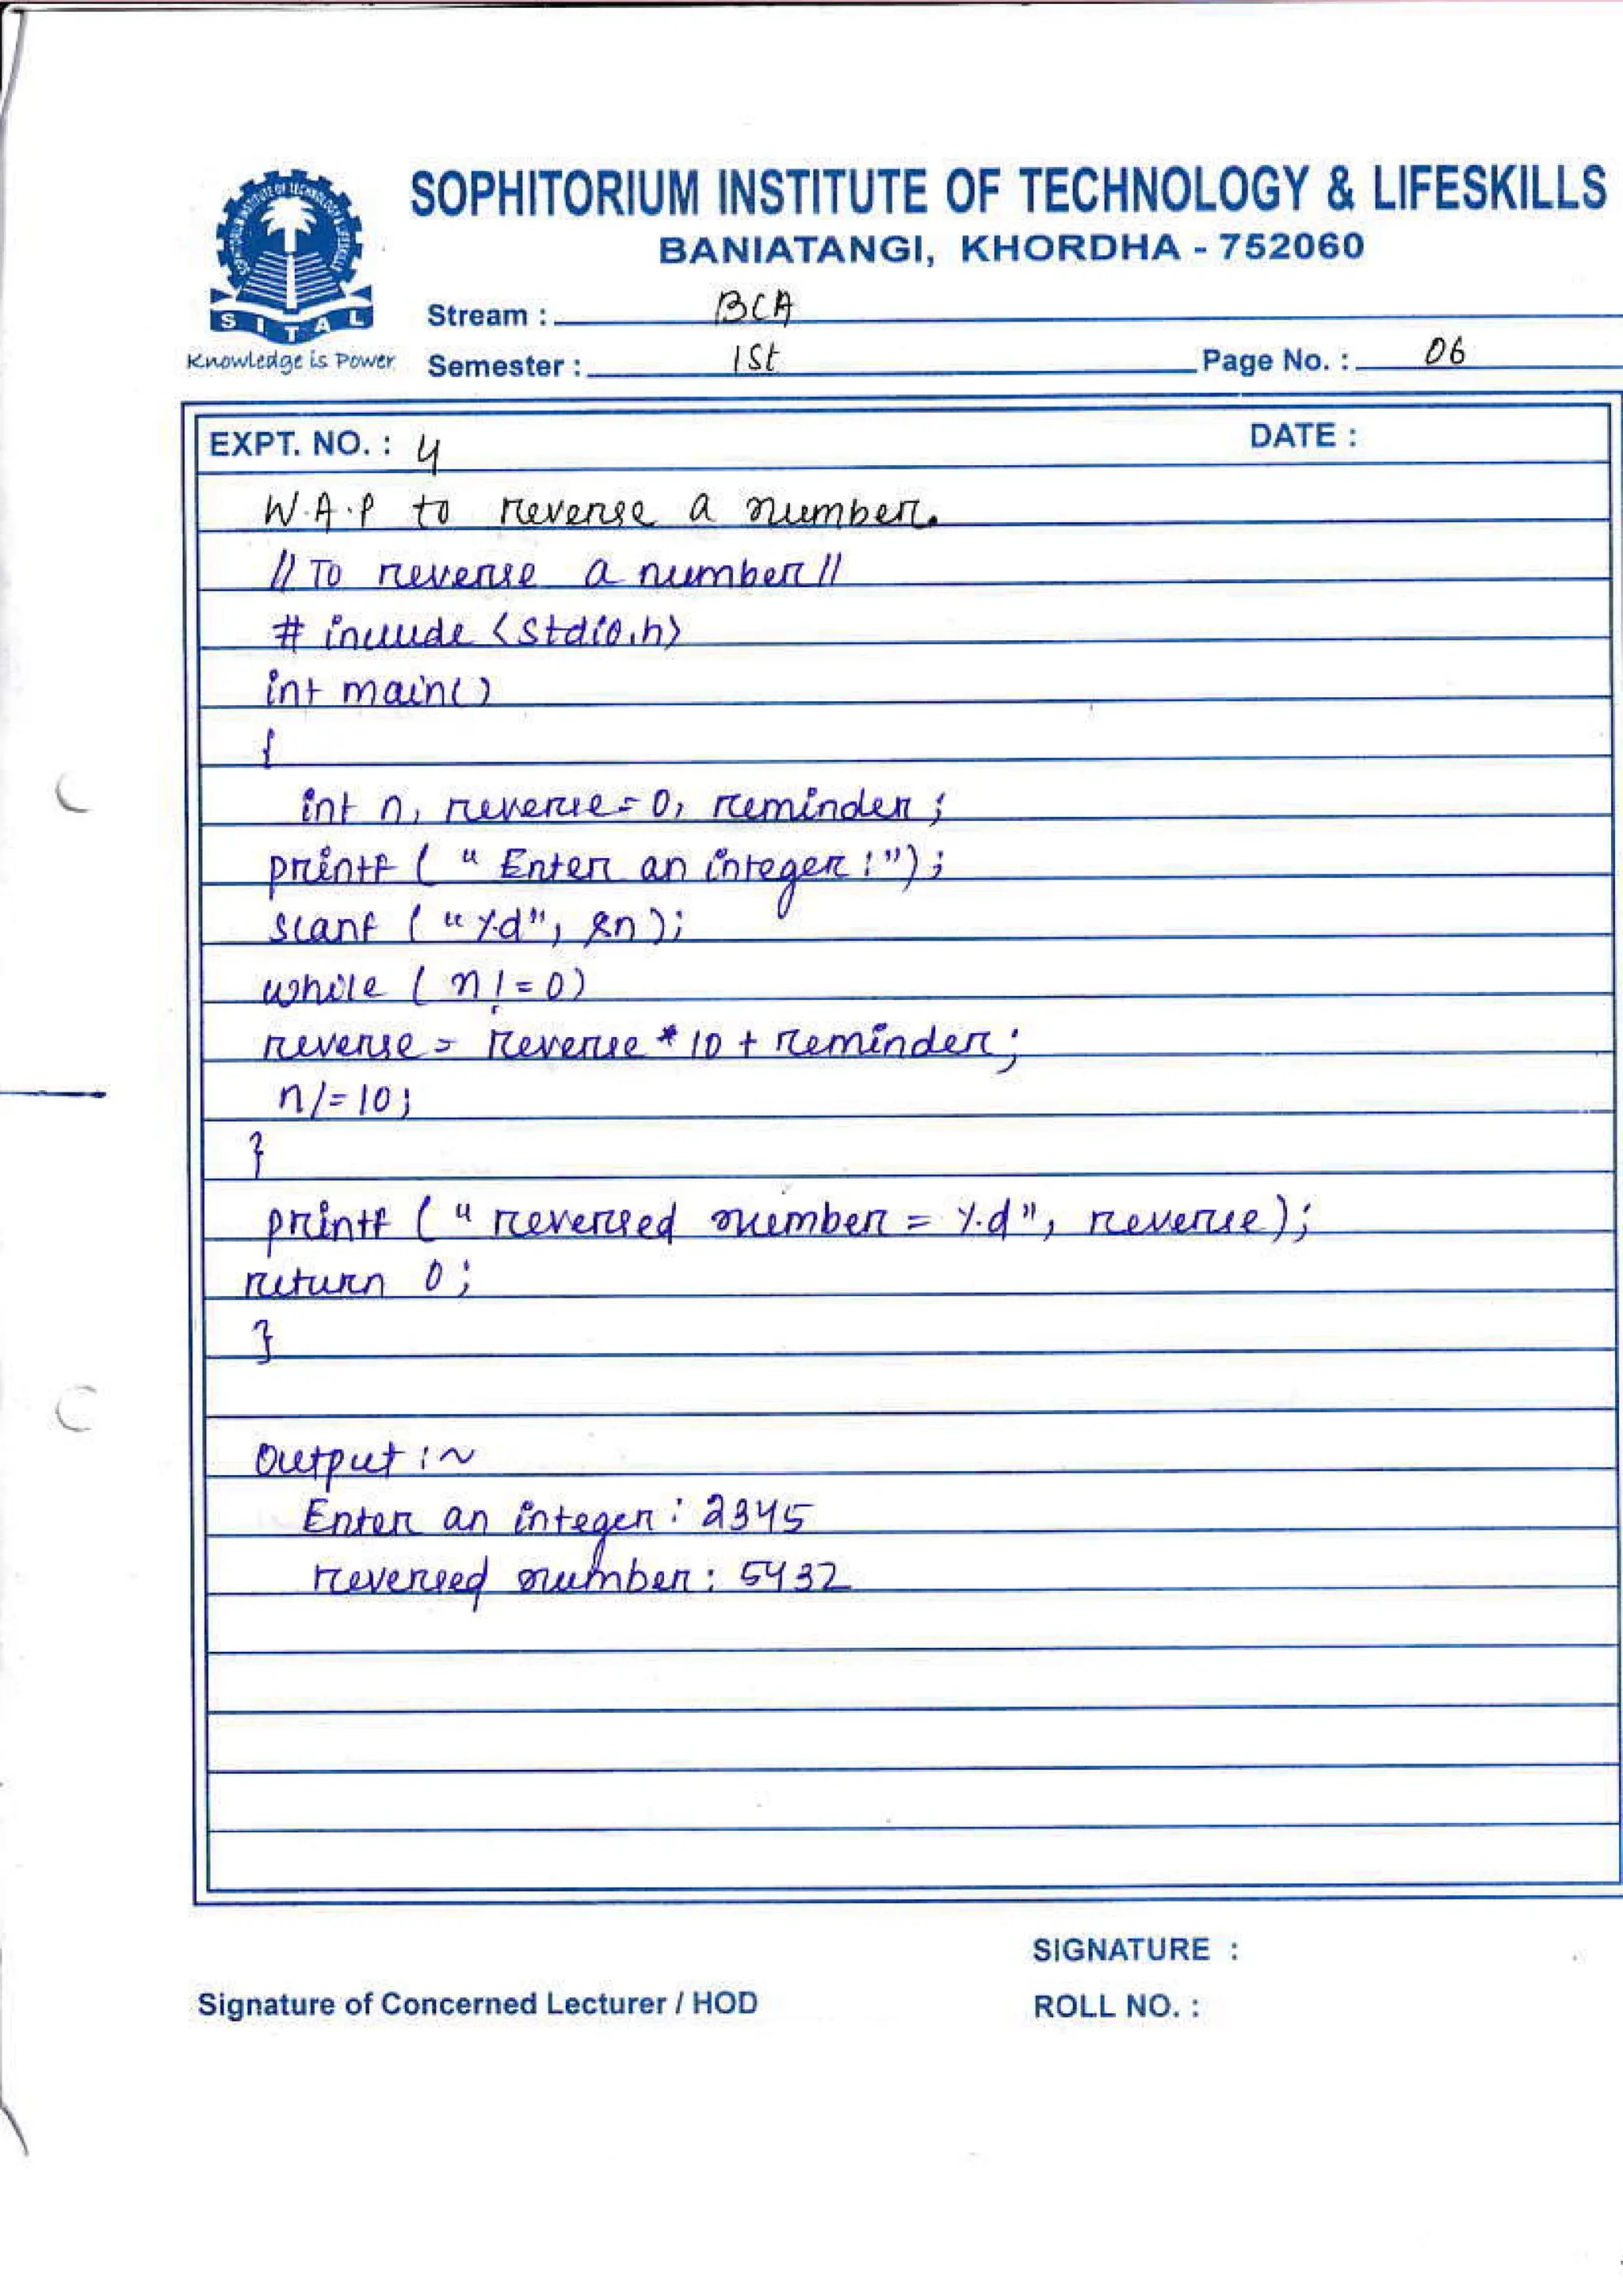 SOPHITORIUM INSTITUTE OF TECHNOLOGY & LIFESKILLS
BANIATANGI, KHORDHA - 752060
Stream : BCA
SITAL
Knowledge is Power
Semester : 1St Page No. : 06
EXPT. NO. : 4 DATE :
W.A.P to reverse a number.
// To reverse a number //
# include <stdio.h>
int main()
{
int n, reverse = 0, reminder ;
printf ( " Enter an integer : ") ;
scanf ( " %d", &n );
while ( n != 0)
reverse = reverse * 10 + reminder ;
n /= 10 ;
}
printf ( " reversed number = %d", reverse) ;
return 0 ;
}
Output :~
Enter an integer : 2345
reversed number : 5432
SIGNATURE :
Signature of Concerned Lecturer / HOD
ROLL NO. :